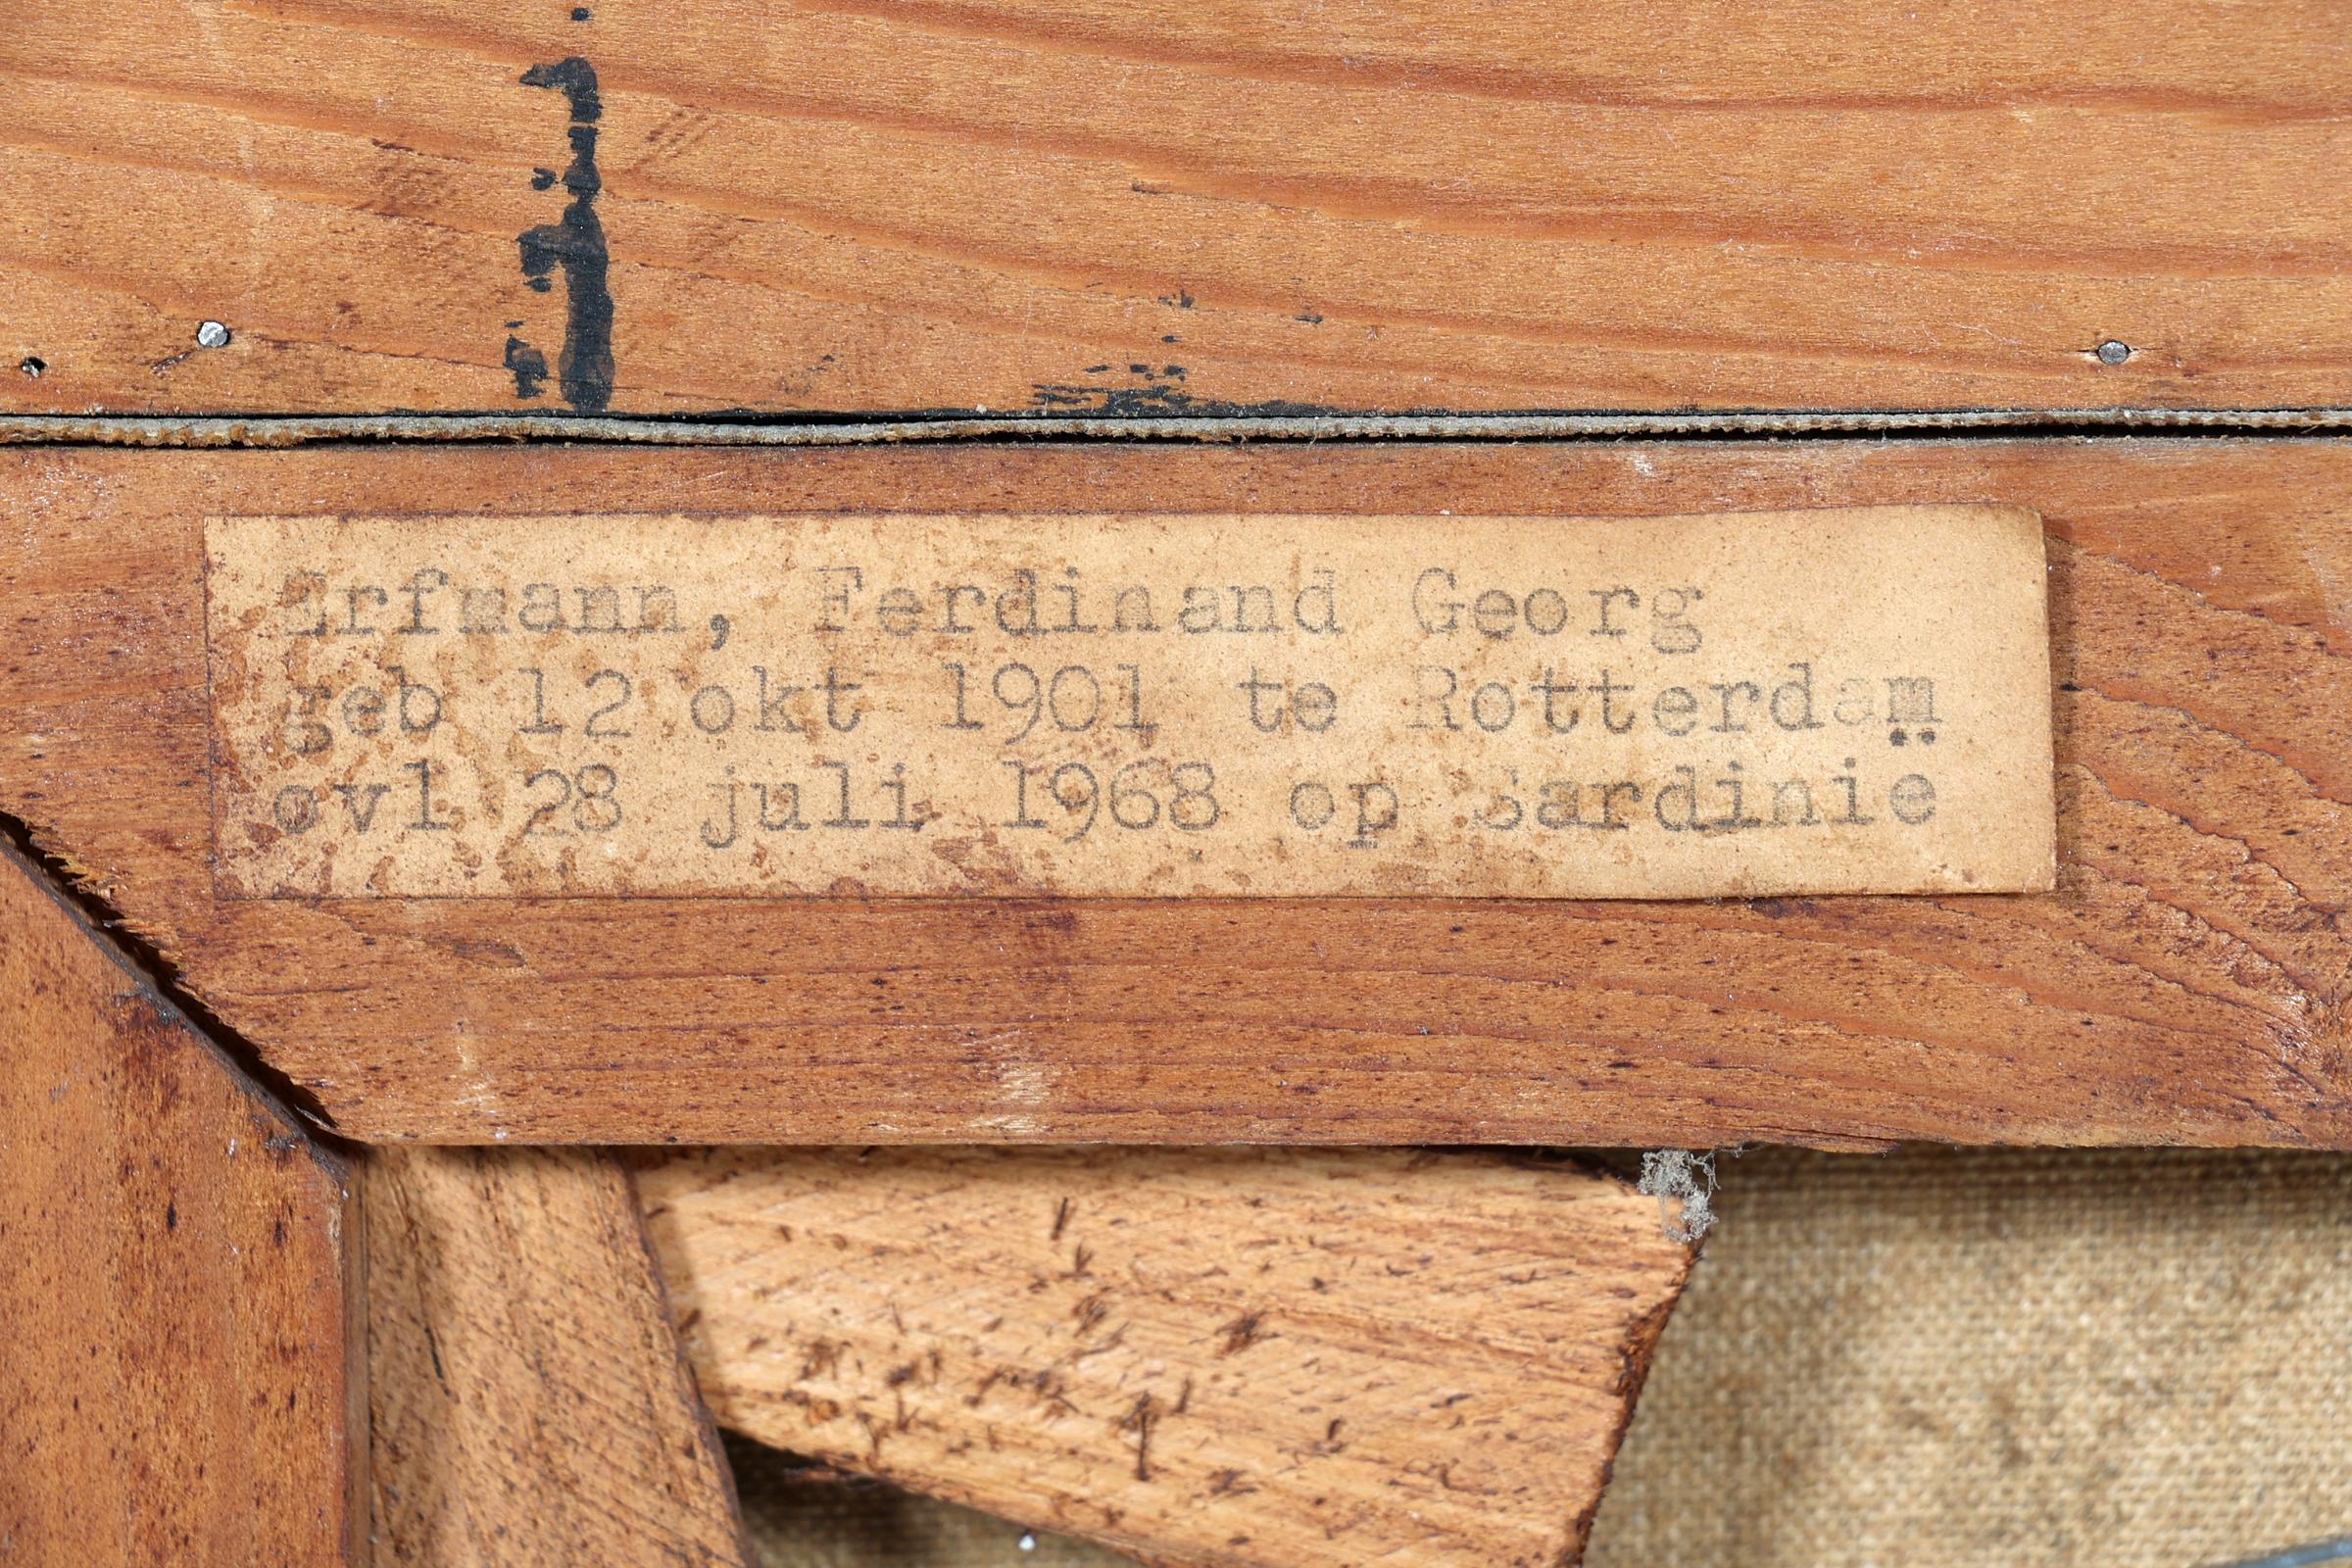 Erfmann, Ferdinand Georg
geb 12 okt 1901 te Rotterdam
ovl 28 juli 1968 op Sardinië